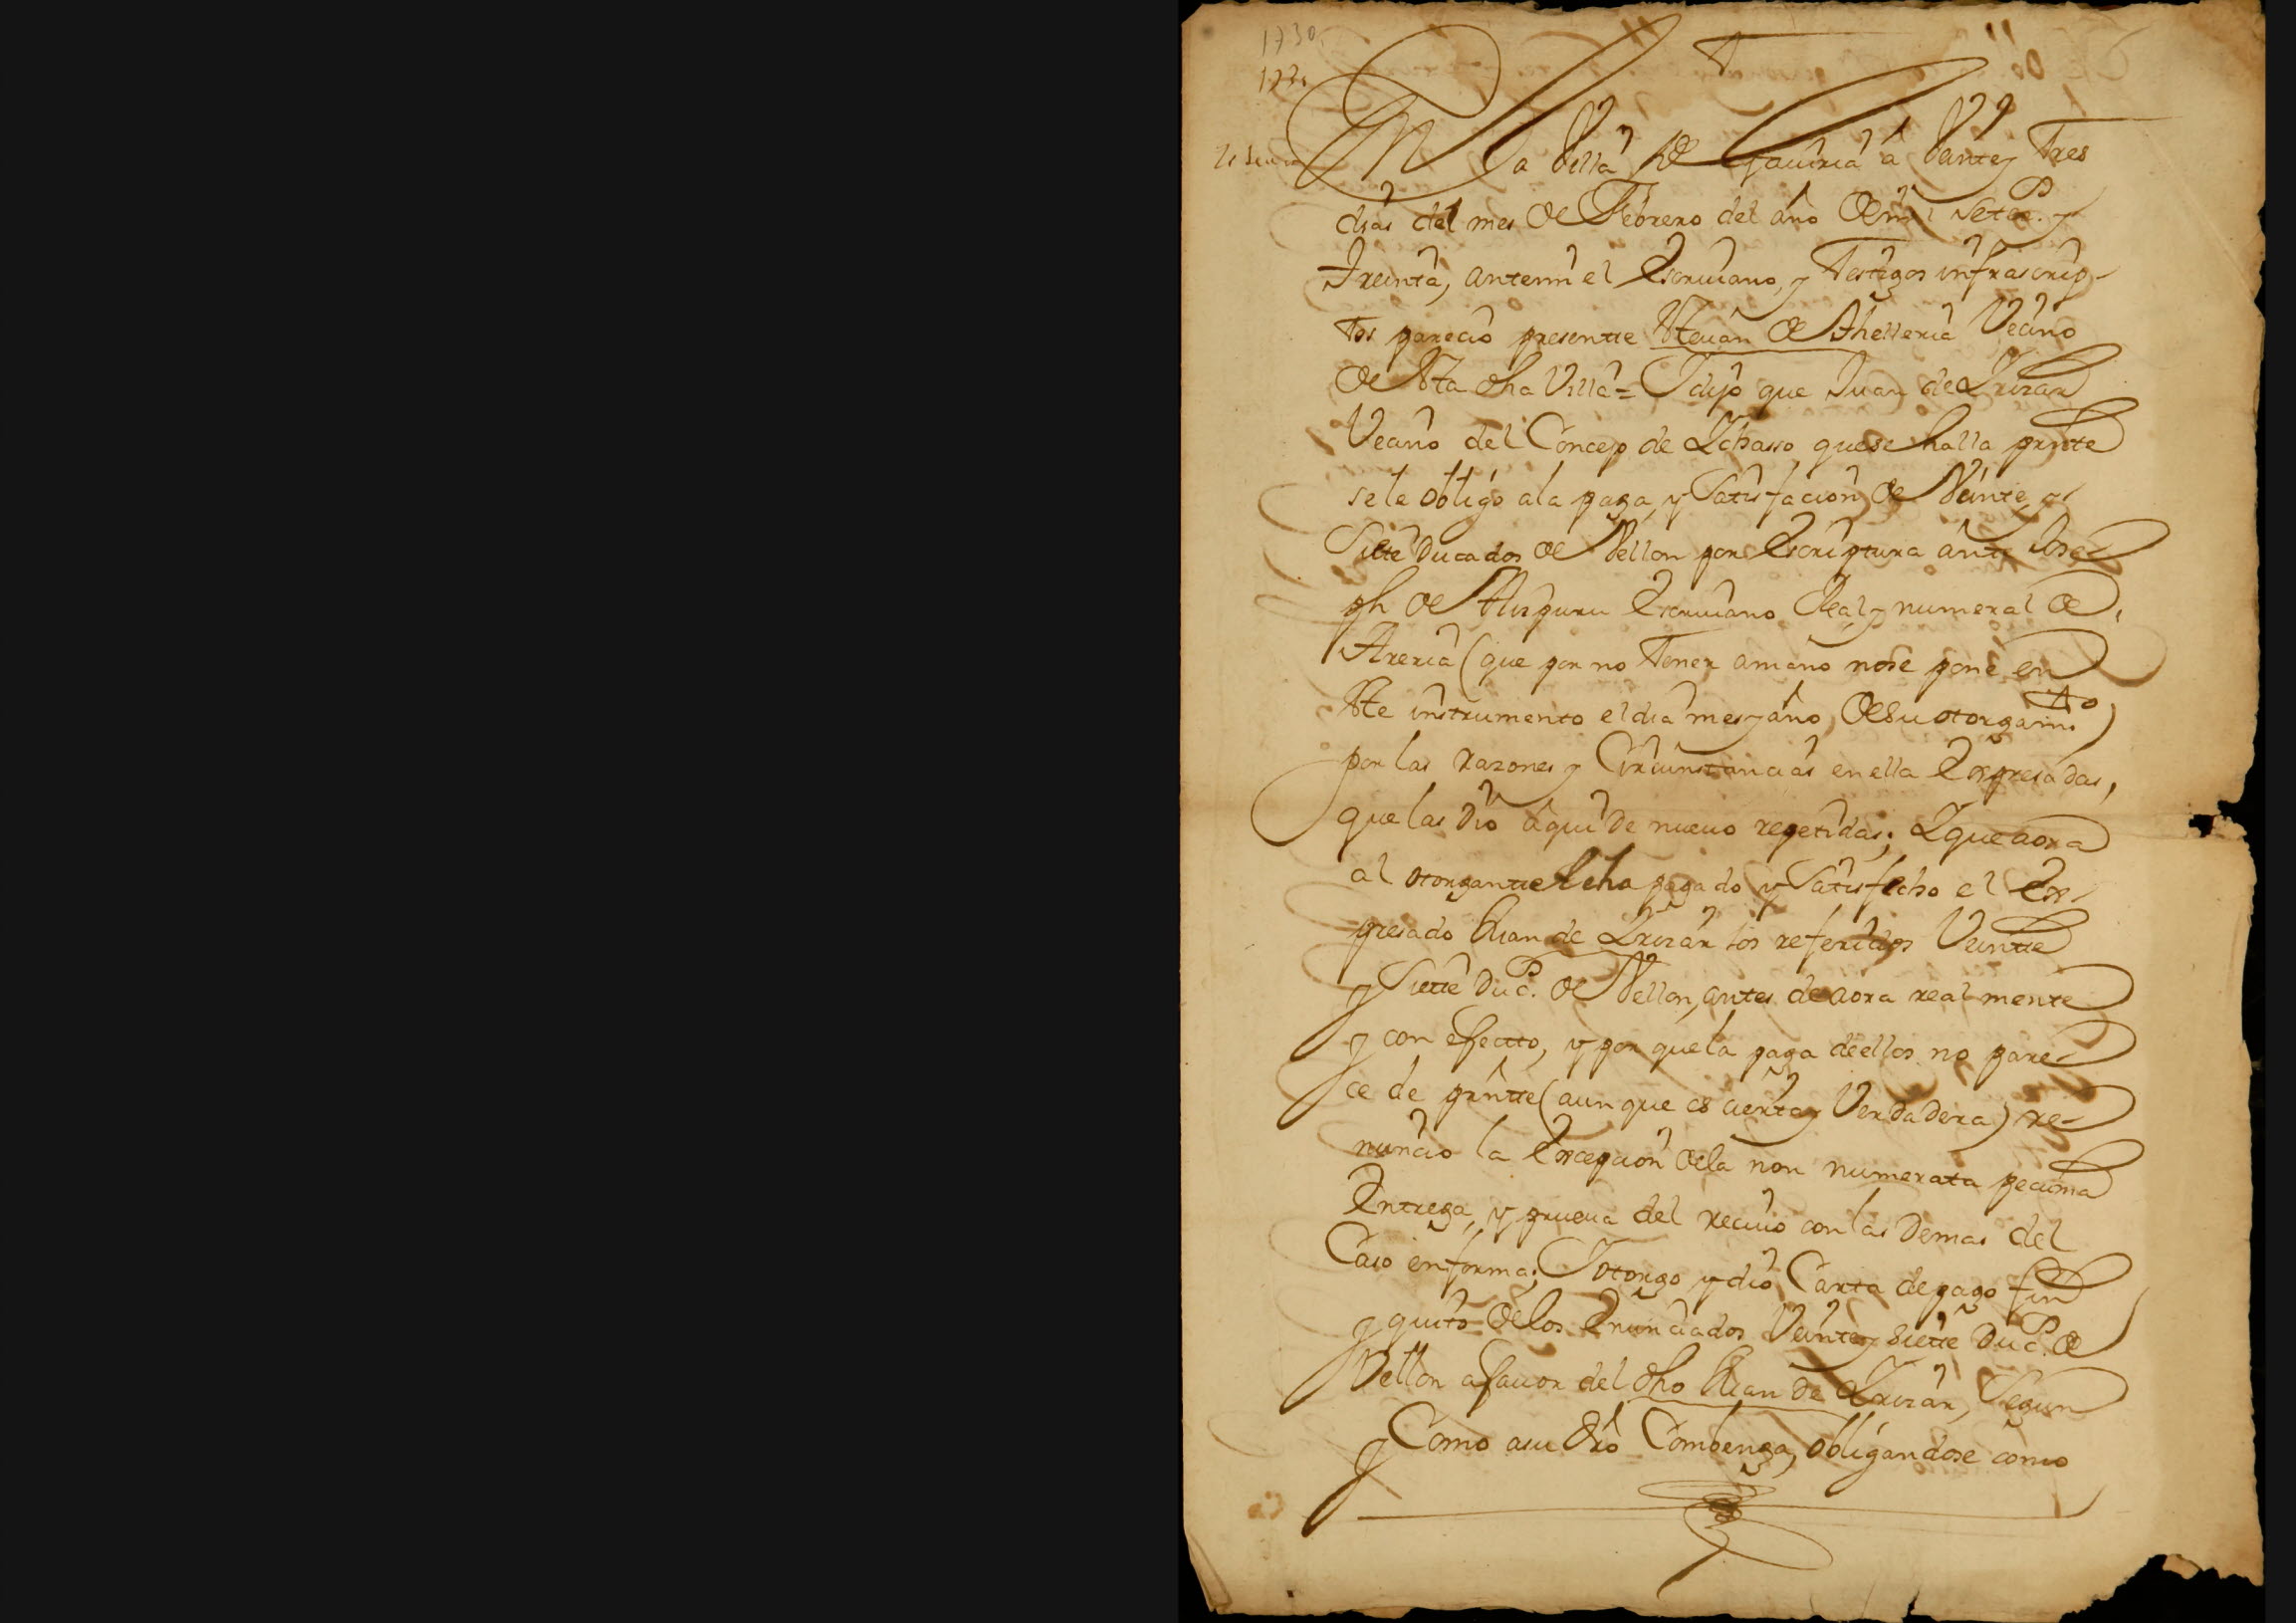 1730
1730
En La Villa de Gauiria â Veinte y Tres
dias del mes de Febrero del año de mil setec.s y
Treinta, antemi el Escriuano, y Testigos infrascrip-
tos pareció presentte Esteuan de Athelleria Vecino
de Esta dha Villa = Y dijo que Juan de Yrizar
Vecino del Concejo de Ychasso que se halla prntte
se le obligó a la paga, y Satisfacion de Veinte, y
Siette Ducados de Vellon por Escriptura ante Jose-
ph de Aizpuru Escriuano Real, y numeral de
Areria (que por no Tener amano nose pone en
Este instrumento el dia mes y año de su otorgam.to)
por las razones y Circunstancias en ella Expresadas,
que las Dió aqui De nueuo repetidas; Y que aora
al otorgantte le ha pagado y Satisfecho el Ex-
presado Juan de Yrizar los referidos Veintte
y Siette Duc.s de Vellon, antes de aora realmente
y con efectto, y por que la paga de ellos no pare-
ce de prntte (aunque es cierta y Verdadera) re-
nunció la Excepcion de la non numerata pecunia
Entrega, y prueua del reciuo con las Demas del
Caso en forma; Y otorgo y dió Carta de pago fin
y quito de los Enunciados Veinte y siette Duc.s de
Vellon a fauor del dho Juan de Yrizar, Segun
y Como a su dro Combenga, obligandose como